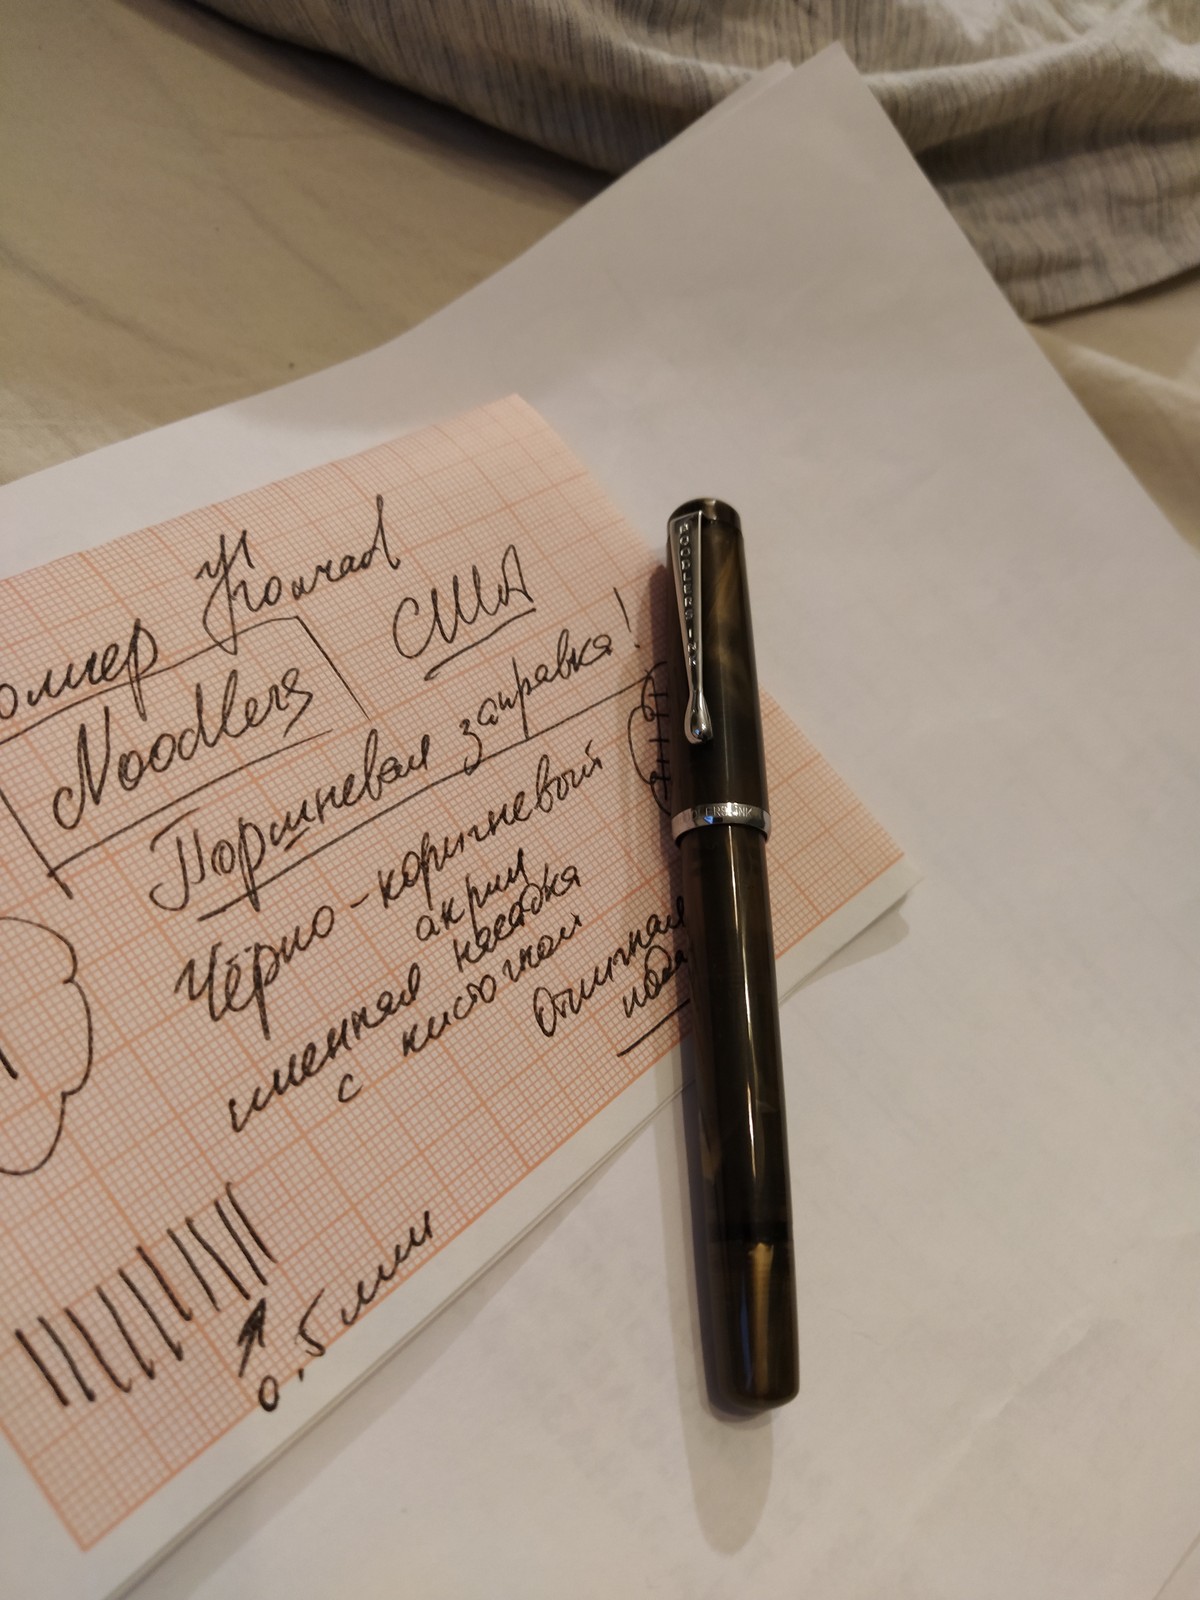 оллер
Noodlers
США
Поршневая заправка!
Чёрно-коричневый
акрил
именная насадка
с кисточкой
Отличная
пода
0,5 мм
NOODLERS INK
LERS INK